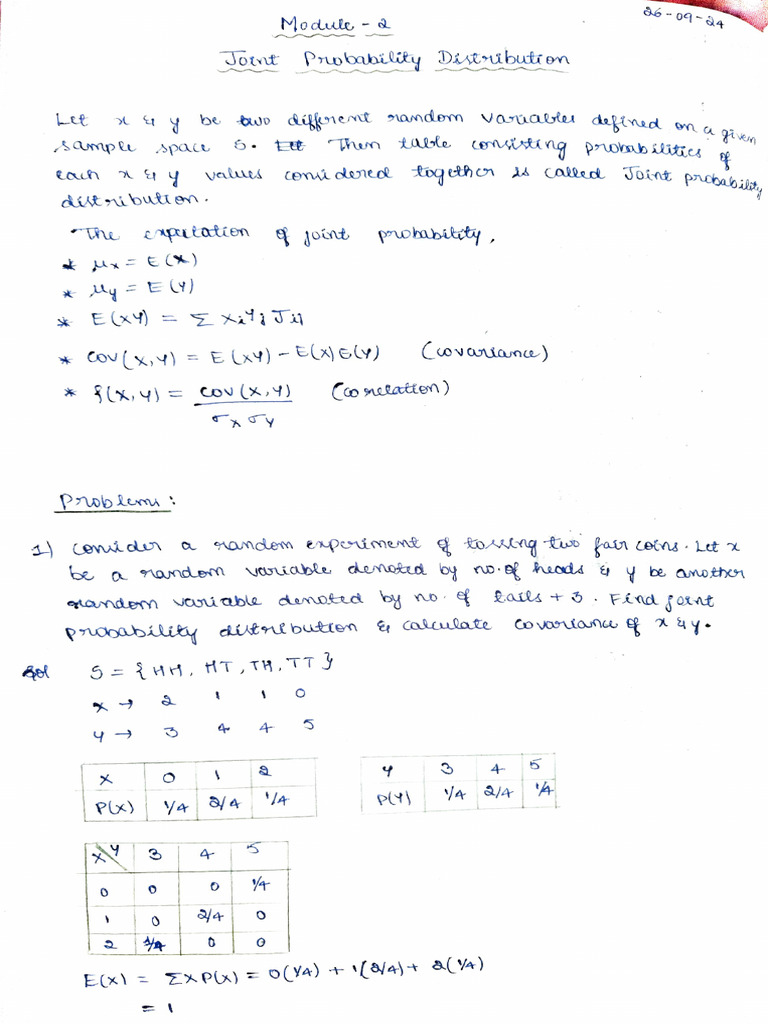 26-09-24
Module - 2
Joint Probability Distribution
Let x & y be two different random variables defined on a given
sample space S. Then table consisting probabilities of
each x & y values considered together is called Joint probability
distribution.
The expectation of joint probability,
* μx = E(X)
* μy = E(Y)
* E(XY) = Σ Xi Yj Jij
* COV(X,Y) = E(XY) - E(X)E(Y) (covariance)
* ρ(X,Y) = COV(X,Y) / σX σY (corelation)
Problems:
1) Consider a random experiment of tossing two fair coins. Let x
be a random variable denoted by no. of heads & y be another
random variable denoted by no. of tails + 3. Find joint
probability distribution & calculate covariance of x & y.
Sol S = { HH, HT, TH, TT }
X → 2 1 1 0
Y → 3 4 4 5
X 0 1 2
P(X) 1/4 2/4 1/4
Y 3 4 5
P(Y) 1/4 2/4 1/4
X Y 3 4 5
0 0 0 1/4
1 0 2/4 0
2 1/4 0 0
E(X) = ΣXP(X) = 0(1/4) + 1(2/4) + 2(1/4)
= 1